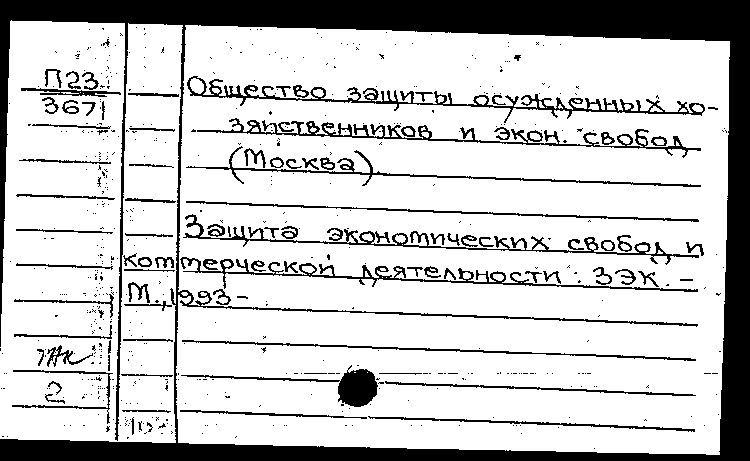 П23
3671
Общество защиты осужденных хо-
зяйственников и экон. свобод
(Москва).
Защита экономических свобод и
коммерческой деятельности : ЗЭК. –
М., 1993–
2